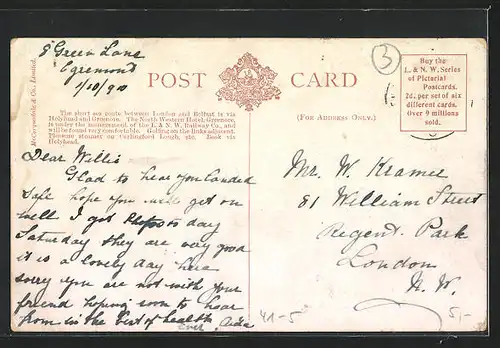 8 Green Lane
Egremond
1/10/90
POST CARD
Buy the
L. & N. W. Series
of Pictorial
Postcards.
2d. per set of six
different cards.
Over 9 millions
sold.
3
McCorquodale & Co., Limited.
The short sea route between London and Belfast is via
Holyhead and Greenore. The North Western Hotel, Greenore,
is under the management of the L. & N. W. Railway Co., and
will be found very comfortable. Golfing on the links adjacent.
Pleasure steamer on Carlingford Lough, etc. Book via
Holyhead.
(FOR ADDRESS ONLY.)
Dear Willie
Glad to hear you landed
safe hope you will get on
well I got Photos to day
Saturday they are very good
it is a lovely day here
sorry you are not with your
friend hoping soon to hear
from in the best of health
ever Ada
Mr. W. Kramer
81 William Street
Regent. Park
London
N. W.
41-5
5,-